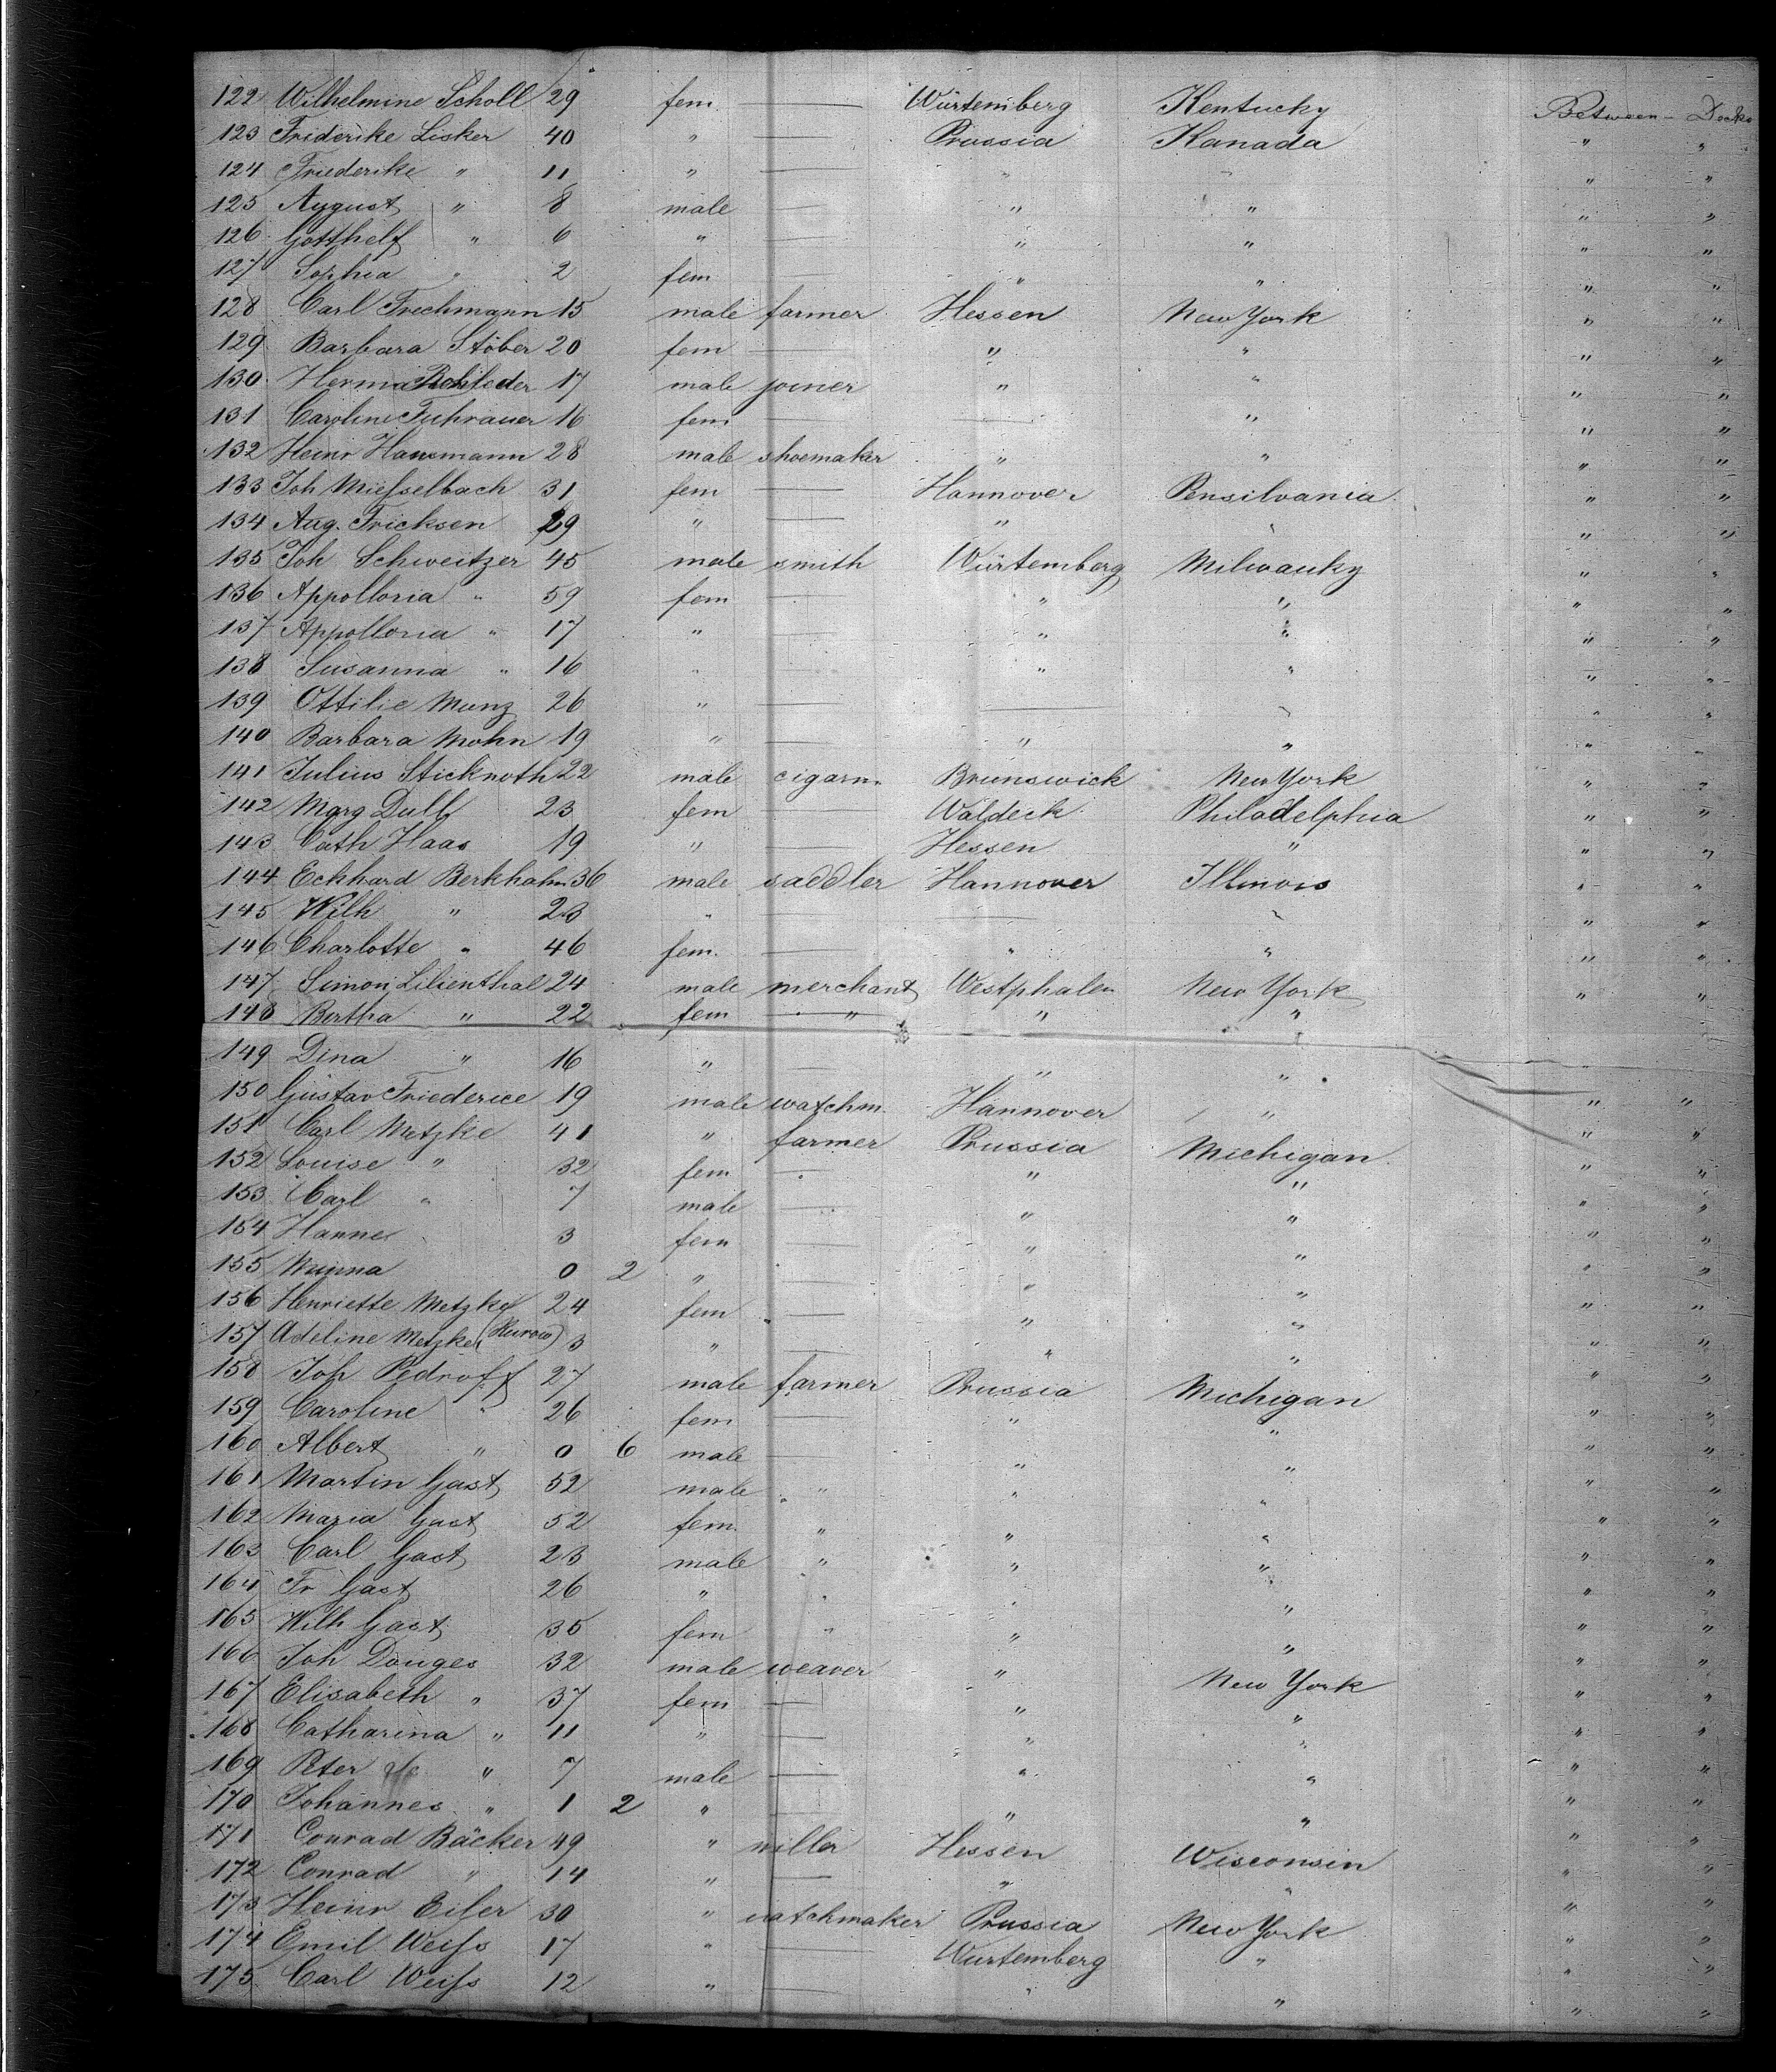 122 Wilhelmine Scholl 29 fem — Würtemberg Kentucky Between-Decks
123 Friderike Lisker 40 " — Prussia Kanada " "
124 Friederike " 11 " — " " " "
125 August " 8 male — " " " "
126 Gotthelf " 6 " — " " " "
127 Sophia " 2 fem — " " " "
128 Carl Frechmann 15 male farmer Hessen New York " "
129 Barbara Stöber 20 fem — " " " "
130 Herma 17 male joiner " " " "
131 Caroline Fuhrauer 16 fem — — " " "
132 Heinr Hansmann 28 male shoemaker " " " "
133 Joh Miefselbach 31 fem — Hannover Pensilvania " "
134 Aug. Fricksen 29 " — " " " "
135 Joh Schweitzer 45 male smith Würtemberg Milwauky " "
136 Appolloria " 59 fem — " " " "
137 Appolloria " 17 " — " " " "
138 Susanna " 16 " — " " " "
139 Ottilie Munz 26 " — — " " "
140 Barbara Mohn 19 " — " " " "
141 Julius Sticknoth 22 male cigarm. Brunswick New York " "
142 Marg Dull 23 fem — Waldeck Philadelphia " "
143 Cath Haas 19 " — Hessen " " "
144 Eckhard Berkhahn 36 male saddler Hannover Illinois " "
145 Wilh " 23 " — — " " "
146 Charlotte " 46 fem. — " " " "
147 Simon Lilienthal 24 male merchant Westphalen New York " "
148 Bertha " 22 fem — " " "
149 Dina " 16 " — " " "
150 Gustav Friederice 19 male watchm. Hannover " " "
151 Carl Metzke 41 " farmer Prussia Michigan " "
152 Louise " 32 fem — " " " "
153 Carl " 7 male — " " " "
154 Hanne 3 fem — " " " "
155 Minna 0 2 " — " " " "
156 Henriette Metzke 24 fem — " " " "
157 Adeline Metzke (Kurow) 3 " — " " " "
158 Joh Pedroff 27 male farmer Prussia Michigan " "
159 Caroline " 26 fem — " " " "
160 Albert " 0 6 male — " " " "
161 Martin Gast 52 male " " " " "
162 Maria Gast 52 fem. " " " " "
163 Carl Gast 23 male " " " " "
164 Fr Gast 26 " " " " " "
165 Wilh Gast 35 fem " " " " "
166 Joh Douges 32 male weaver " New York " "
167 Elisabeth " 37 fem — " " " "
168 Catharina " 11 " — " " " "
169 Peter " 7 male — " " " "
170 Johannes " 1 2 " — " " " "
171 Conrad Bäcker 49 " miller Hessen Wisconsin " "
172 Conrad " 14 " — " " " "
173 Heinr Eifer 30 " watchmaker Prussia New York " "
174 Emil Weifs 17 " — Wurtemberg " " "
175 Carl Weifs 12 " — " " " "